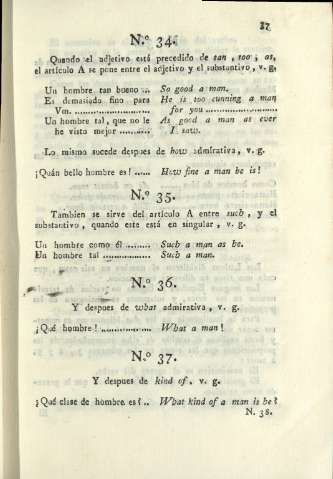 37
N.º 34.
Quando el adjetivo está precedido de tan, too; as,
el artículo A se pone entre el adjetivo y el substantivo, v. g.
Un hombre tan bueno ... So good a man.
Es demasiado fino para He is too cunning a man
Vm. .......................... for you ..........................
Un hombre tal, que no le As good a man as ever
he visto mejor ........... I saw.
Lo mismo sucede despues de how admirativa, v. g.
¡Quán bello hombre es! ...... How fine a man he is!
N.º 35.
Tambien se sirve del artículo A entre such, y el
substantivo, quando este está en singular, v. g.
Un hombre como él ......... Such a man as he.
Un hombre tal ................ Such a man.
N.º 36.
Y despues de what admirativa, v. g.
¡Qué hombre! ................. What a man!
N.º 37.
Y despues de kind of, v. g.
¿Qué clase de hombre es?.. What kind of a man is he?
N. 38.